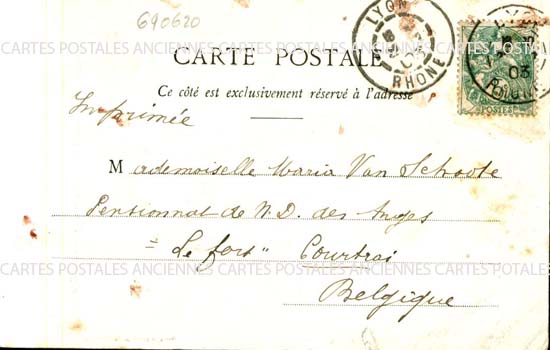 690620
LYON
RHONE
LYON
03
RHONE
POSTES
CARTE POSTALE
Ce côté est exclusivement réservé à l'adresse
Imprimée
CARTES POSTALES ANCIENNES CARTES POSTALES ANCIENNES CARTES POSTALES
Mademoiselle Maria Van Schoote
Pensionnat de N.D. des Anges
"Le fort" Courtrai
CARTES POSTALES ANCIENNES CARTES POSTALES ANCIENNES CARTES POTALES
Belgique